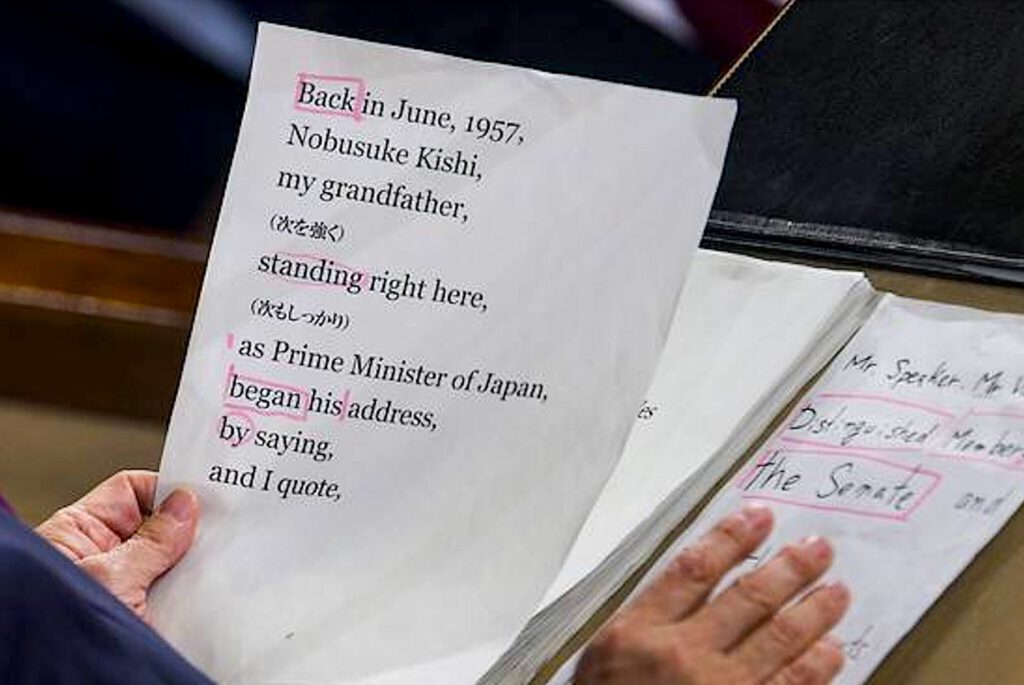 Back in June, 1957,
Nobusuke Kishi,
my grandfather,
(次を強く)
standing right here,
(次もしっかり)
as Prime Minister of Japan,
began his address,
by saying,
and I quote,
Mr Speaker. Mr
Distinguished Members
the Senate and